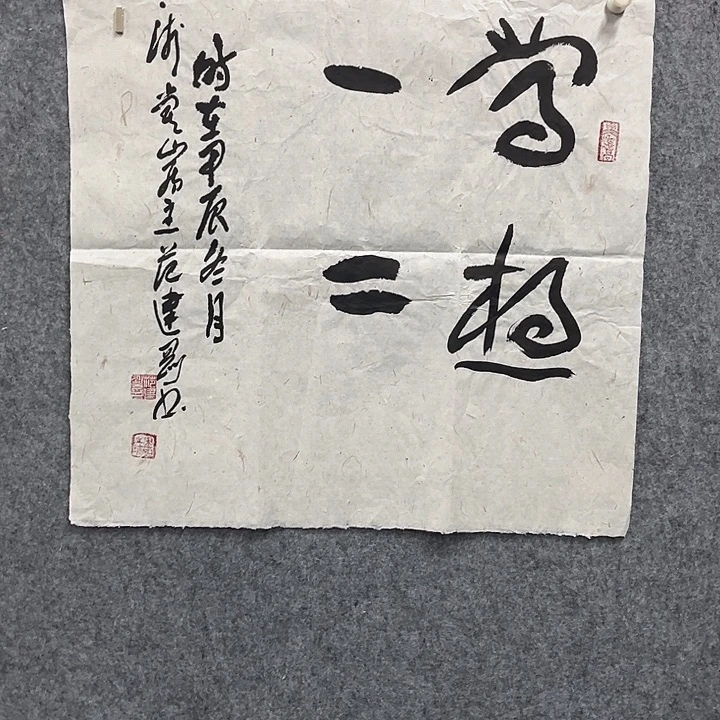 常想
一二
时在甲辰冬月
山房主范建书